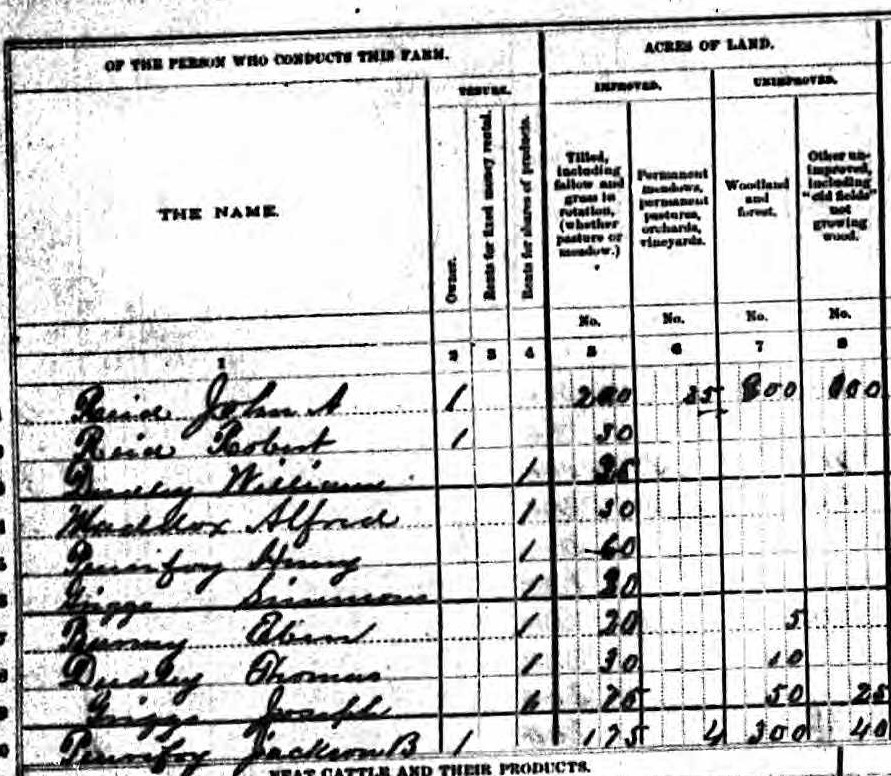 OF THE PERSON WHO CONDUCTS THIS FARM.
ACRES OF LAND.
TENURE.
IMPROVED.
UNIMPROVED.
THE NAME.
Owner.
Rents for fixed money rental.
Rents for shares of products.
Tilled, including fallow and grass in rotation, (whether pasture or meadow.)
Permanent meadows, permanent pastures, orchards, vineyards.
Woodland and forest.
Other unimproved, including "old fields" not growing wood.
No. No. No. No.
1 2 3 4 5 6 7 8
Reid John A 1 200 25
Reid Robert 1 30
Dudley William 1 35
Maddox Alfred 1 30
Purifoy Henry 1 60
Griggs Simmons 1
Eben 1 20 5
Dudley Thomas 1 30 10
Griggs Joseph 50 25
Purifoy Jackson B 1 175 4 300 40
NEAT CATTLE AND THEIR PRODUCTS.